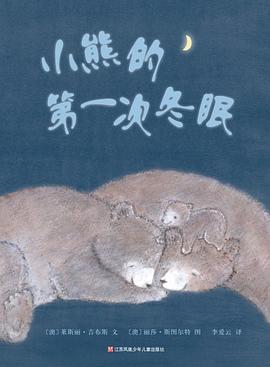 小熊的
第一次冬眠
〔澳〕莱斯丽·吉布斯 文 〔澳〕丽莎·斯图尔特 图 李爱云 译
江苏凤凰少年儿童出版社